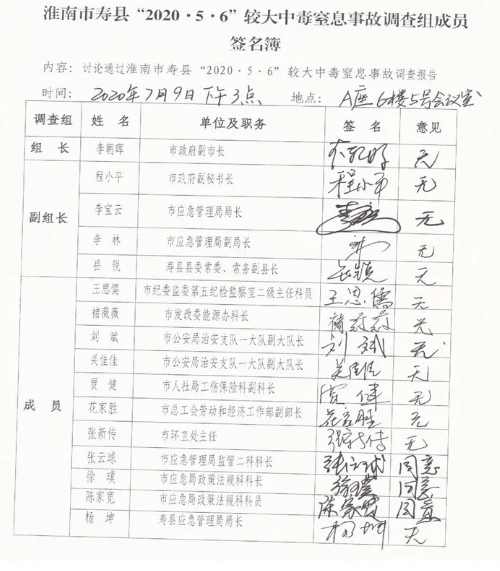 淮南市寿县“2020·5·6”较大中毒窒息事故调查组成员
签名簿
内容：讨论通过淮南市寿县“2020·5·6”较大中毒窒息事故调查报告
时间：2020年7月9日下午3点 地点：A座6楼5号会议室
调查组 姓名 单位及职务 签名 意见
组长 李朝晖 市政府副市长 无
程小平 市政府副秘书长 程小平 无
副组长 李宝云 市应急管理局局长 无
李林 市应急管理局副局长 无
岳锐 寿县县委常委、常务副县长 岳锐 无
王思儒 市纪委监委第五纪检监察室二级主任科员 王思儒 无
褚薇薇 市发改委能源办科长 无
刘斌 市公安局治安支队一大队副大队长 刘斌 无
关佳佳 市公安局治安支队一大队副大队长 关佳佳 无
成员 贾健 市人社局工伤保险科副科长 贾健 无
花家胜 市总工会劳动和经济工作部副部长 花家胜 无
张新传 市环卫处主任 张新传 无
张云球 市应急管理局监管二科科长 张云球 同意
徐璞 市应急局政策法规科科长 徐璞 同意
陈家宽 市应急局政策法规科科员 陈家宽 同意
杨坤 寿县应急管理局局长 杨坤 无